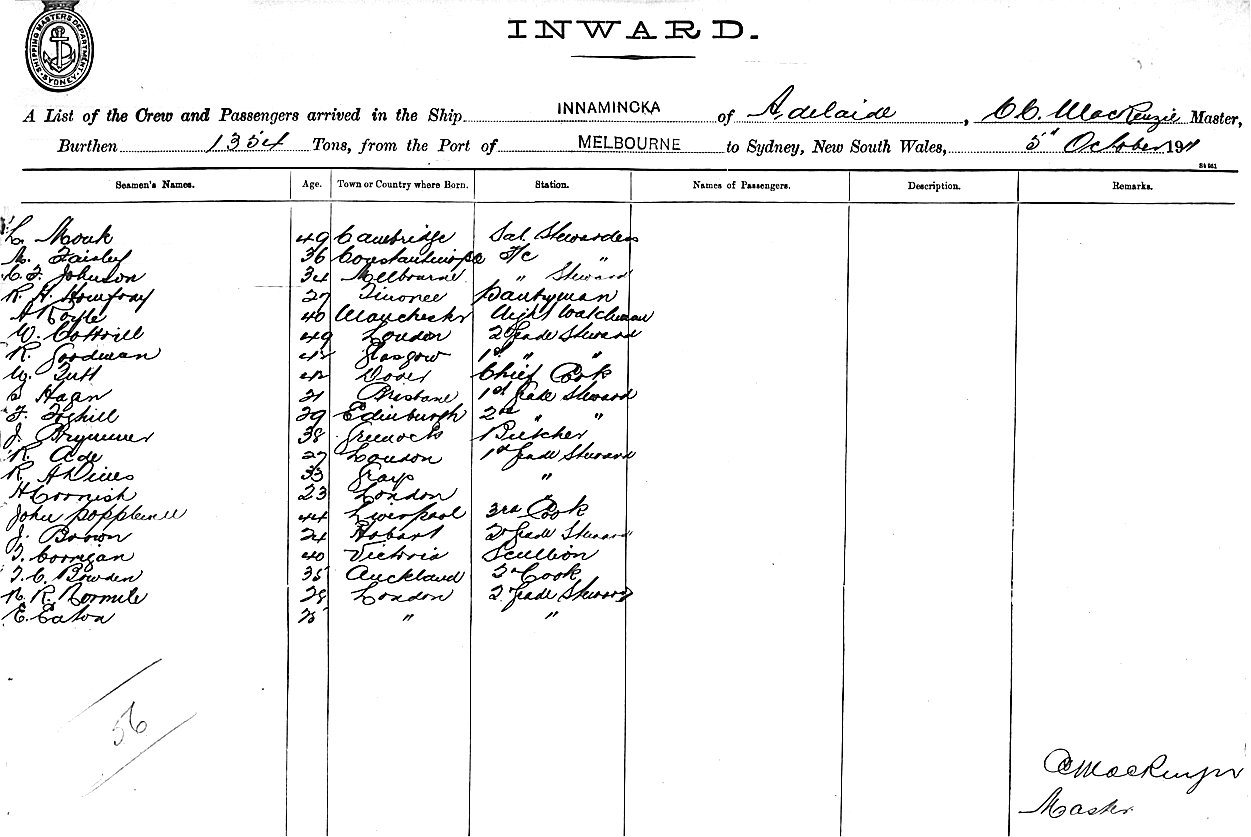 SHIPPING MASTERS DEPARTMENT. SYDNEY.
INWARD.
A List of the Crew and Passengers arrived in the Ship INNAMINCKA of Adelaide, MacKenzie Master,
Burthen 1354 Tons, from the Port of MELBOURNE to Sydney, New South Wales, 5th October 1911
Seamen's Names. Age. Town or Country where Born. Station. Names of Passengers. Description. Remarks.
Monk 49 Cambridge Sal. Stewardess
M. 36 F/c "
C. F. Johnson 34 Melbourne " Steward
R. H. Homfray 27 Tinonee Pantryman
A Royle 40 Manchester Night Watchman
W. Cottrill 49 London 2 Grade Steward
R. Goodman 42 Glasgow 1st " "
W. Tutt 42 Dover Chief Cook
S Hagan 21 Brisbane 1st Grade Steward
F. 39 Edinburgh 2nd " "
J. Brymner 38 Greenock Butcher
R. Ade 27 London 1st Grade Steward
R. 33 Grays "
H Cornish 23 London "
John Popplewell 44 Liverpool 3rd Cook
J. Brown 24 Hobart 2 Grade Steward
T. Corrigan 40 Victoria Scullion
T. C. Bowden 35 Auckland 2nd Cook
N. R. Normile 28 London 2 Grade Steward
E. Eaton 25 " "
56
MacKenzie
Master